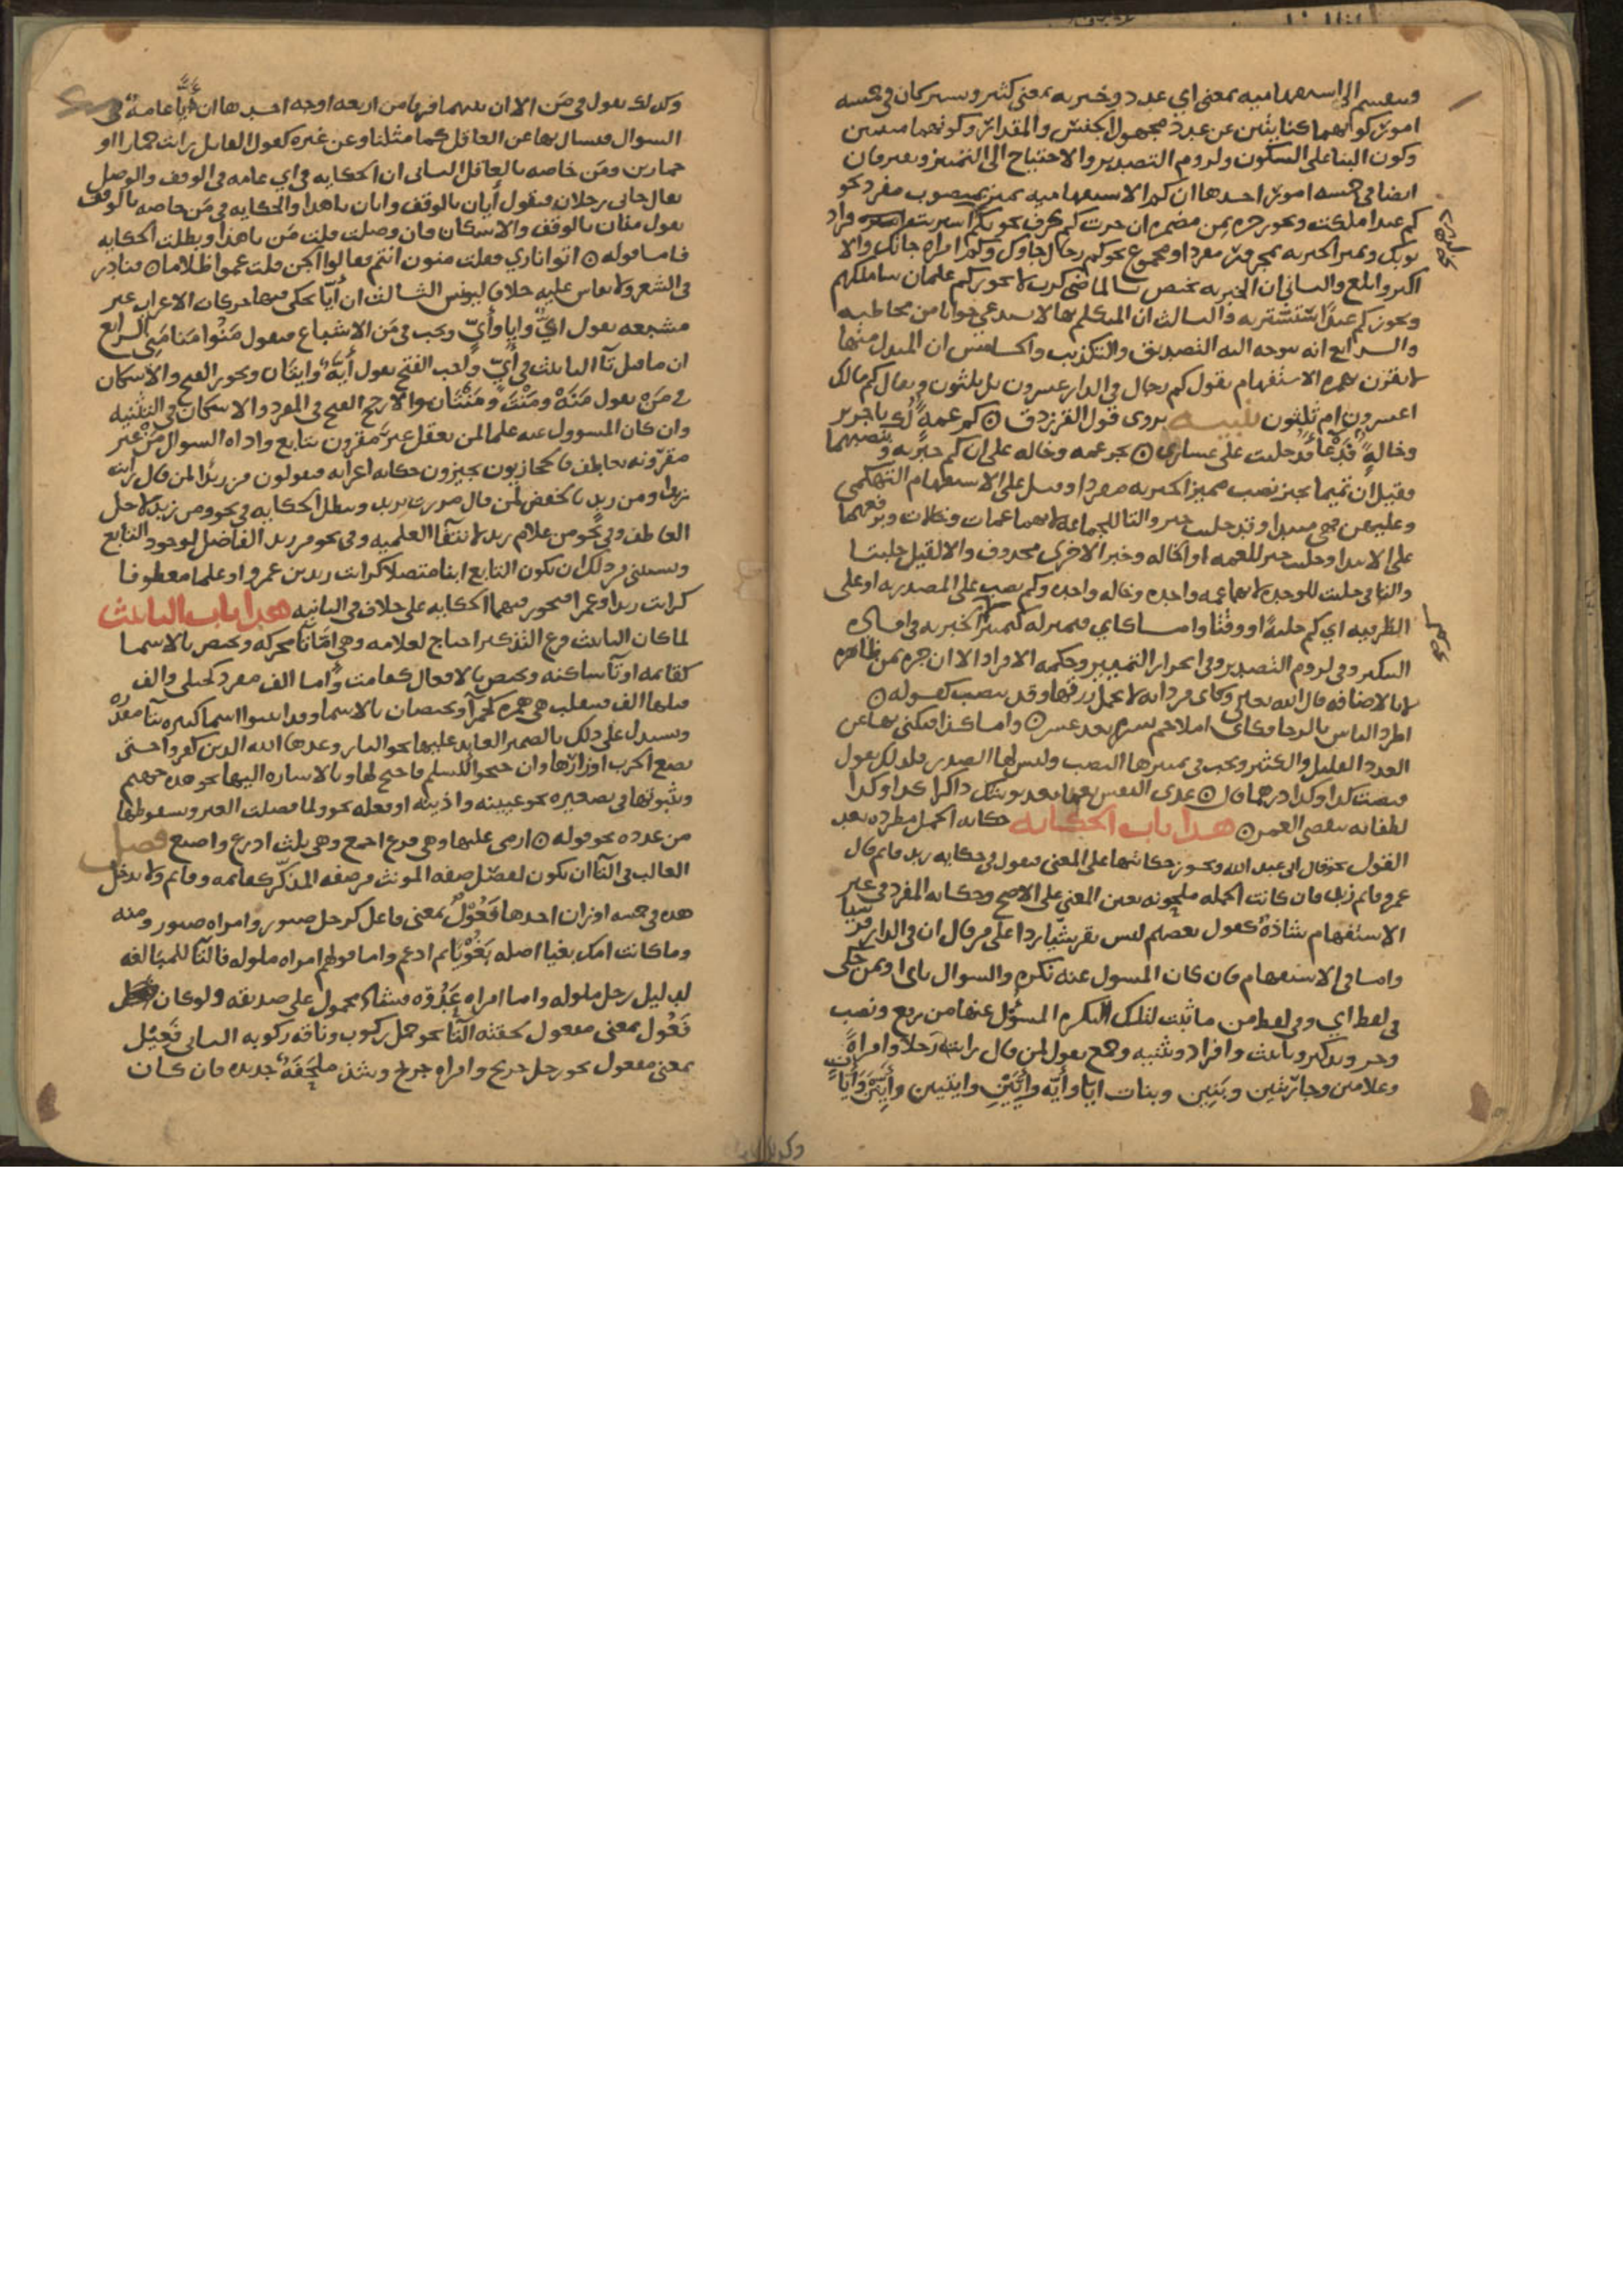 وينقسم الى استفهامية بمعنى اي عدد وخبرية بمعنى كثير ويشتركان في خمسة
امور كونهما كنايتين عن عدد مجهول الجنس والمقدار وكونهما مبنيين
وكون البنا على السكون ولزوم التصدير والاحتياج الى التمييز ويفترقان
ايضا في خمسة امور احدها ان كم الاستفهامية تميز بمنصوب مفرد نحو
كم عبدا ملكت ويجوز جره بمن مضمرة ان جرت كم بحرف نحو بكم اشتريت
ثوبك وتميز الخبرية بمجرور مفرد او مجموع نحو كم رجال جاوك وكم امراه جاتك والا
اكثر وابلغ والثاني ان الخبرية تختص بالماضي كرب لا يجوز كم غلمان ساملكهم
ويجوز كم عبدا ستشتريه والثالث ان المتكلم بها لا يستدعي جوابا من مخاطبه
والرابع انه يتوجه اليه التصديق والتكذيب والخامس ان المبدل منها
لا يقترن بهمزة الاستفهام تقول كم رجال في الدار عشرون بل ثلثون ويقال كم مالك
اعشرون ام ثلثون تنبيه يروى قول الفرزدق كم عمة لك يا جرير
وخالة فدعا قد حلبت علي عشاري بجر عمه وخاله على ان كم خبرية وبنصبهما
فقيل ان تميما تجيز نصب مميز الخبرية مفردا وقيل على الاستفهام التهكمي
وعليهن فهي مبتدا وقد حلبت خبر والتا للجماعة لانهما عمات وخالات وبرفعهما
على الابتدا وحلبت خبر للعمة او الخالة وخبر الاخرى محذوف والا لقيل حلبتا
والتا في حلبت للوحدة لانهما عمه واحده وخاله واحده وكم نصب على المصدرية او على
الظرفية اي كم حلبة او وقتا واما كاي فبمنزلة كم الخبرية في افادة
التكثير وفي لزوم التصدير وفي انجرار التمييز وحكمه الافراد الا ان جره بمن ظاهرة
لا بالاضافة قال الله تعالى وكاي من دابة لا تحمل رزقها وقد ينصب كقوله
اطرد الياس بالرجا فكاي املا حم يسره بعد عسر واما كذا فيكنى بها عن
العدد القليل والكثير ويجب في تمييزها النصب وليس لها الصدر فلذلك تقول
قبضت كذا وكذا درهما قال عد النفس نعمى بعد بوساك ذاكرا كذا وكذا
لطفا به نسي الجهد هذا باب الحكاية حكاية الجمل مطردة بعد
القول نحو قال اني عبد الله ويجوز حكايتها على المعنى فتقول في حكاية زيد قايم قال
عمرو قايم زيد فان كانت الجملة ملحونة تعين المعنى على الاصح وحكاية المفرد في غير
الاستفهام شاذة كقول بعضهم ليس بقرشيا ردا على من قال ان في الدار قرشيا
واما في الاستفهام فان كان المسول عنه نكرة والسوال باي او بمن حكى
في لفظ اي وفي لفظ من ما ثبت لتلك النكرة المسؤل عنها من رفع ونصب
وجر وتذكير وتانيث وافراد وتثنية وجمع تقول لمن قال رايت رجلا وامراة
وغلامين وجاريتين وبنين وبنات ايا واية وايين وايتين وايين وايات
وكذلك
وكذلك تقول في من الا ان بينهما فرقا من اربعة اوجه احدها ان ايا عامة في
السوال فيسال بها عن العاقل كما مثلنا وعن غيره كقول القايل رايت حمارا او
حمارين ومن خاصة بالعاقل الثاني ان الحكاية في اي عامة في الوقف والوصل
يقال جاني رجلان فتقول أيان بالوقف وايان يا هذا والحكاية في من خاصة بالوقف
تقول منان بالوقف والاسكان فان وصلت قلت من يا هذا وبطلت الحكاية
فاما قوله اتوا ناري فقلت منون انتم فقالوا الجن قلت عموا ظلاما فنادر
في الشعر ولا يقاس عليه خلافا ليونس الثالث ان أيا يحكى فيها حركات الاعراب غير
مشبعة تقول ايٌّ وايا وأيٍّ ويجب في من الاشباع فتقول منوا منا مني الرابع
ان ما قبل تا التانيث في أي واجب الفتح تقول أية وايتان ويجوز الفتح والاسكان
في من تقول مَنَهْ ومَنْتْ ومَنْتان والارجح الفتح في المفرد والاسكان في التثنية
وان كان المسوول عنه علما لمن يعقل غير مقرون بتابع واداة السوال من غير
مقرونه بعاطف فالحجازيون يجيزون حكاية اعرابه فيقولون من زيدا لمن قال رايت
زيدا ومن زيد بالخفض لمن قال مررت بزيد وتبطل الحكاية في نحو ومن زيد لاجل
العاطف وفي نحو من غلام زيد لانتفا العلمية وفي نحو من زيد الفاضل لوجود التابع
ويستثنى من ذلك ان يكون التابع ابنا متصلا كرايت زيد بن عمرو او علما معطوفا
كرايت زيدا وعمرا فتجوز فيهما الحكاية على خلاف في الثانية هذا باب التانيث
لما كان التانيث فرع التذكير احتاج لعلامة وهي اما تا محركة وتختص بالاسما
كقايمة او تا ساكنة وتختص بالافعال كقامت واما الف مفردة كحبلى والف
قبلها الف فتقلب هي همزة كحمرا ويختصان بالاسما وقد انثوا اسما كثيرة بتا مقدرة
ويستدل على ذلك بالضمير العايد عليها نحو النار وعدها الله الذين كفروا حتى
تضع الحرب اوزارها وان جنحوا للسلم فاجنح لها وبالاشارة اليها نحو هذه جهنم
وبثبوتها في تصغيره نحو عيينة واذينة او فعله نحو ولما فصلت العير وبسقوطها
من عدده نحو قوله ارمي عليها وهي فرع اجمع وهي ثلث اذرع واصبع فصل
الغالب في التا ان تكون لفصل صفة المونث من صفة المذكر كقايمة وقايم ولا تدخل
هذه في خمسة اوزان احدها فَعُوْلٌ بمعنى فاعل كرجل صبور وامراه صبور ومنه
وما كانت امك بغيا اصله بَغُوْيًا ثم ادغم واما قولهم امراه ملوله فالتا للمبالغة
بدليل رجل ملوله واما امراه عَدُوّه فشاذ محمول على صديقه ولو كان
فَعُول بمعنى مفعول لحقته التا نحو جمل ركوب وناقه ركوبه الثاني فَعِيْل
بمعنى مفعول نحو رجل جريح وامراه جريح وشذ ملحفة جديده فان كان